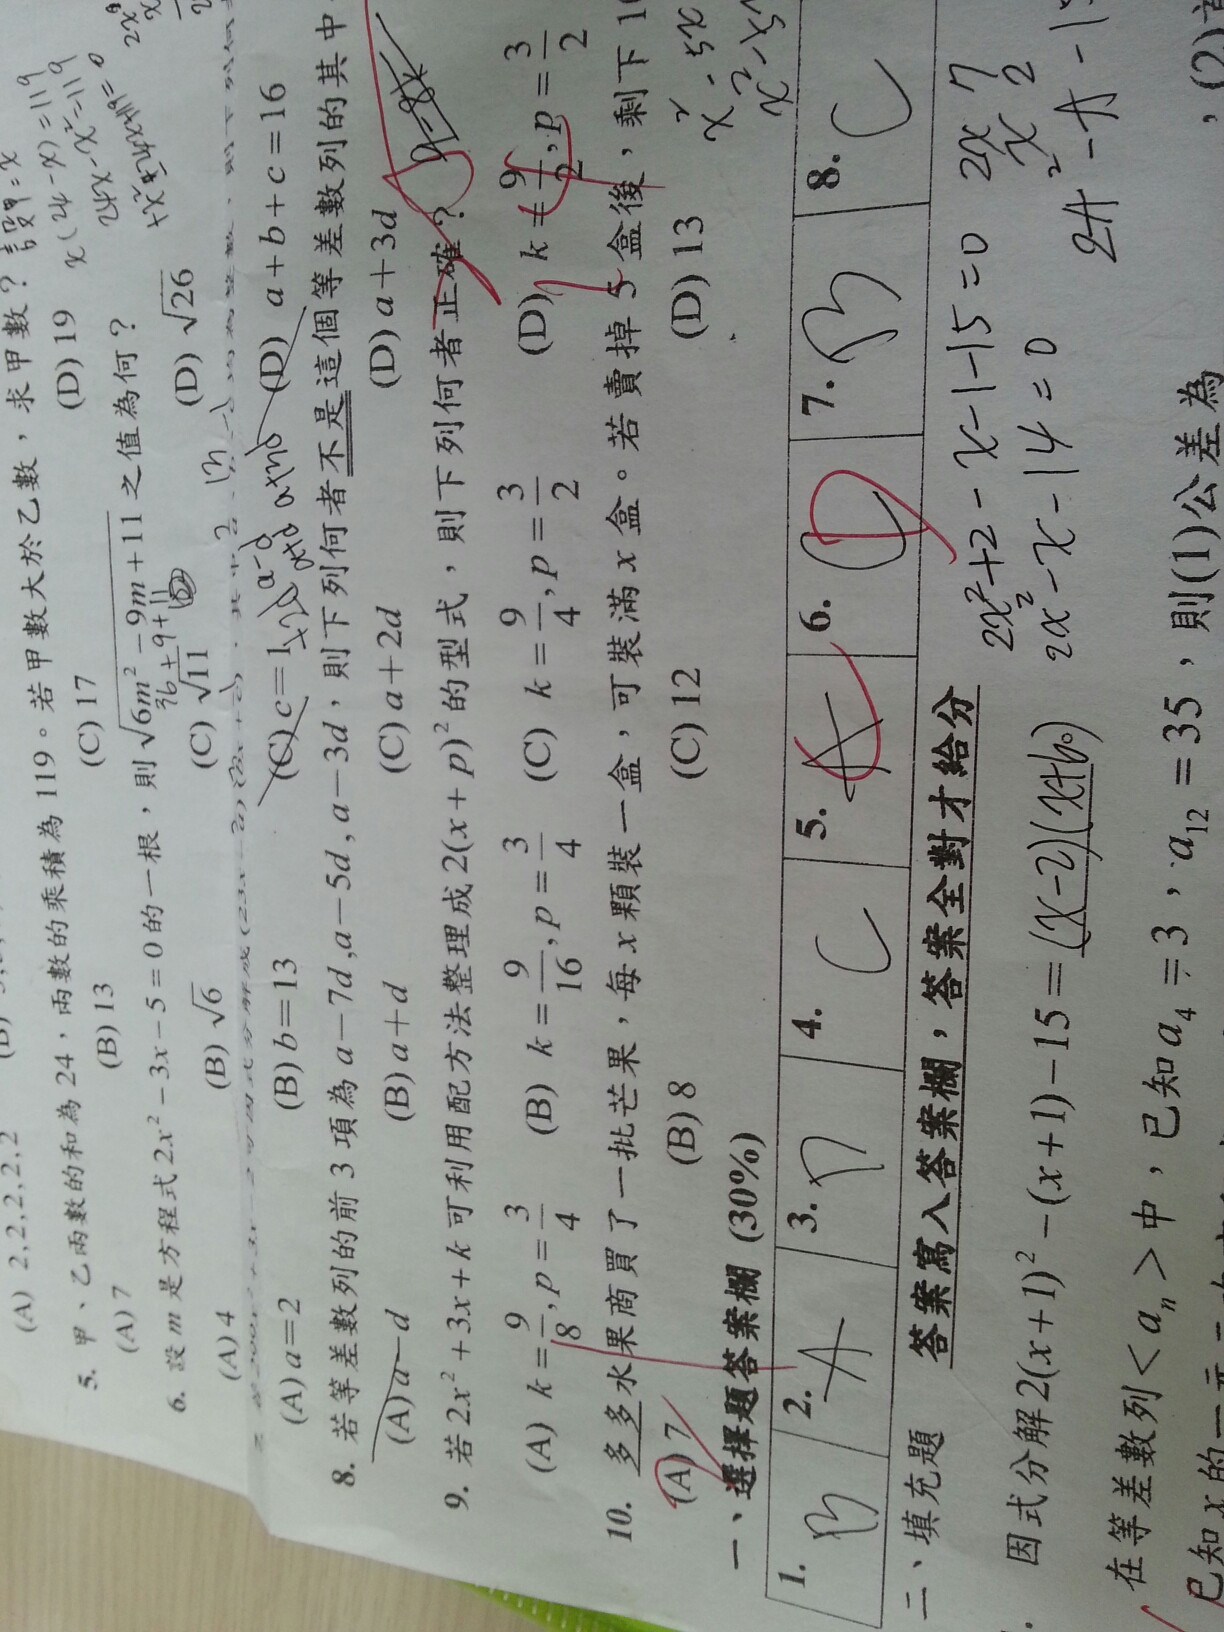 (A) 2,2,2,2,2
5. 甲、乙兩數的和為24，兩數的乘積為119。若甲數大於乙數，求甲數？ 設甲=x
(A) 7 (B) 13 (C) 17 (D) 19
x(24-x)=119
24x-x²=119
6. 設 m 是方程式 2x²-3x-5=0 的一根，則 √(6m²-9m+11) 之值為何？
(A) 4 (B) √6 (C) √11 (D) √26
(A) a=2 (B) b=13 (C) c=1 (D) a+b+c=16
8. 若等差數列的前 3 項為 a-7d, a-5d, a-3d，則下列何者不是這個等差數列的其中
(A) a-d (B) a+d (C) a+2d (D) a+3d
9. 若 2x²+3x+k 可利用配方法整理成 2(x+p)² 的型式，則下列何者正確？
(A) k=9/8, p=3/4 (B) k=9/16, p=3/4 (C) k=9/4, p=3/2 (D) k=9/2, p=3/2
10. 多多水果商買了一批芒果，每 x 顆裝一盒，可裝滿 x 盒。若賣掉 5 盒後，剩下
(A) 7 (B) 8 (C) 12 (D) 13
一、選擇題答案欄 (30%)
1. B 2. A 3. D 4. C 5. A 6. 7. B 8. C
二、填充題 答案寫入答案欄，答案全對才給分
2x²+2-x-1-15=0
2x²-x-14=0
因式分解 2(x+1)²-(x+1)-15=
在等差數列<aₙ>中，已知 a₄=3，a₁₂=35，則(1)公差為 ，(2)
已知 x 的一元二